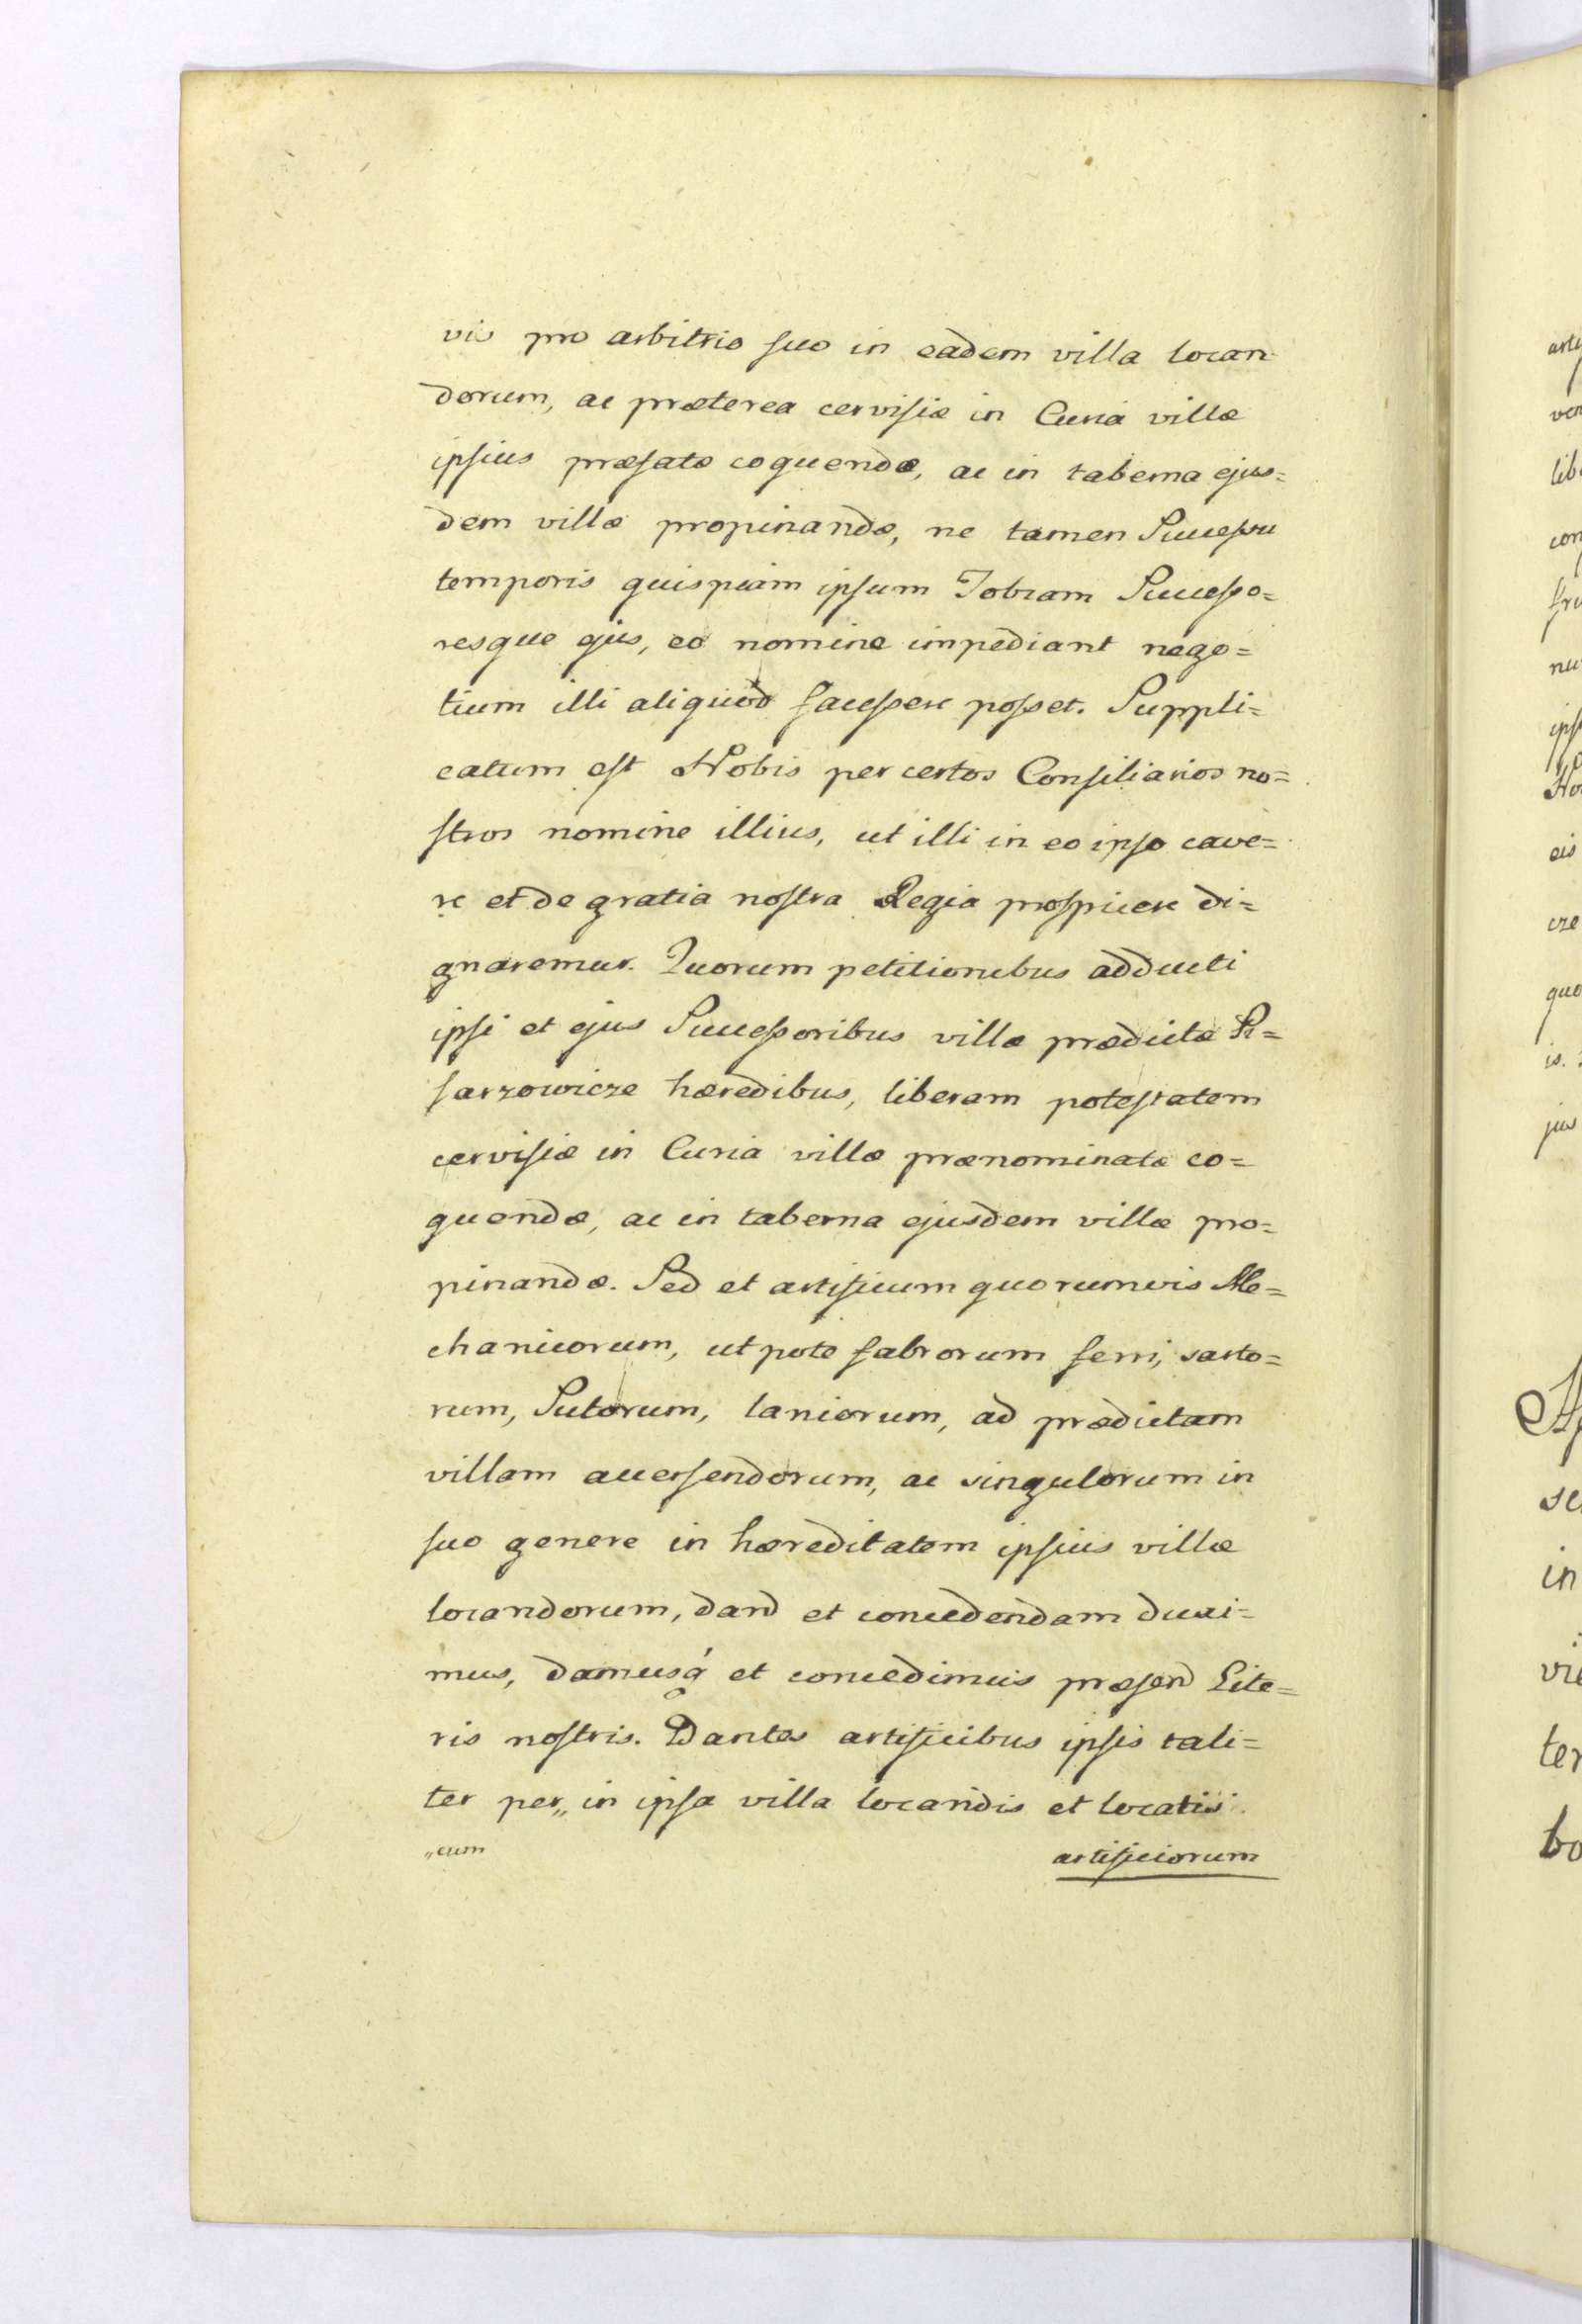 vis pro arbitrio suo in eadem villa locan
dorum, ac præterea cervisiæ in Curia villæ
ipsius præfatæ coquendæ, ac in taberna ejus=
dem villæ propinandæ, ne tamen Successu
temporis quispiam ipsum Jobram Successo=
resque ejus, eo nomine impediant nego=
tium illi aliquod facessere posset. Suppli=
catum est Nobis per certos Consiliarios no=
stros nomine illius, ut illi in eo ipso cave=
re et de gratia nostra Regia prospicere di=
gnaremur. Quorum petitionibus adducti
ipsi et ejus Successoribus villæ prædictæ Pi=
sarzowicze hæredibus, liberam potestatem
cervisiæ in Curia villæ prænominatæ co=
quendæ, ac in taberna ejusdem villæ pro=
pinandæ. Sed et artificum quorumvis Me=
chanicorum, utpote fabrorum ferri, sarto=
rum, Sutorum, laniorum, ad prædictam
villam accersendorum, ac singulorum in
suo genere in hæreditatem ipsius villæ
locandorum, dand et concedendam duxi=
mus, damusq́ et concedimus præsend Lite=
ris nostris. Dantes artificibus ipsis tali=
ter per„ in ipsa villa locandis et locatis
„eum
artificiorum
arti
ver
lib
con
fru
nu
ips
No
eis
cze
quo
is.
jus
se
in
vi
ter
bo